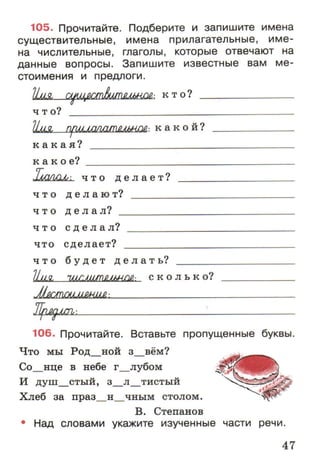 105. Прочитайте. Подберите и запишите имена
существительные, имена прилагательные, име-
на числительные, глаголы, которые отвечают на
данные вопросы. Запишите известные вам ме-
стоимения и предлоги.
Имя существительное: кто?
что?
Имя прилагательное: какой?
какая?
какое?
Глагол: что делает?
что делают?
что делал?
что сделал?
что сделает?
что будет делать?
Имя числительное: сколько?
Местоимение:
Предлог:
106. Прочитайте. Вставьте пропущенные буквы.
Что мы Род_ной з_вём?
Со_нце в небе г_лубом
И душ_стый, з_л_тистый
Хлеб за праз_н_чным столом.
В. Степанов
• Над словами укажите изученные части речи.
47